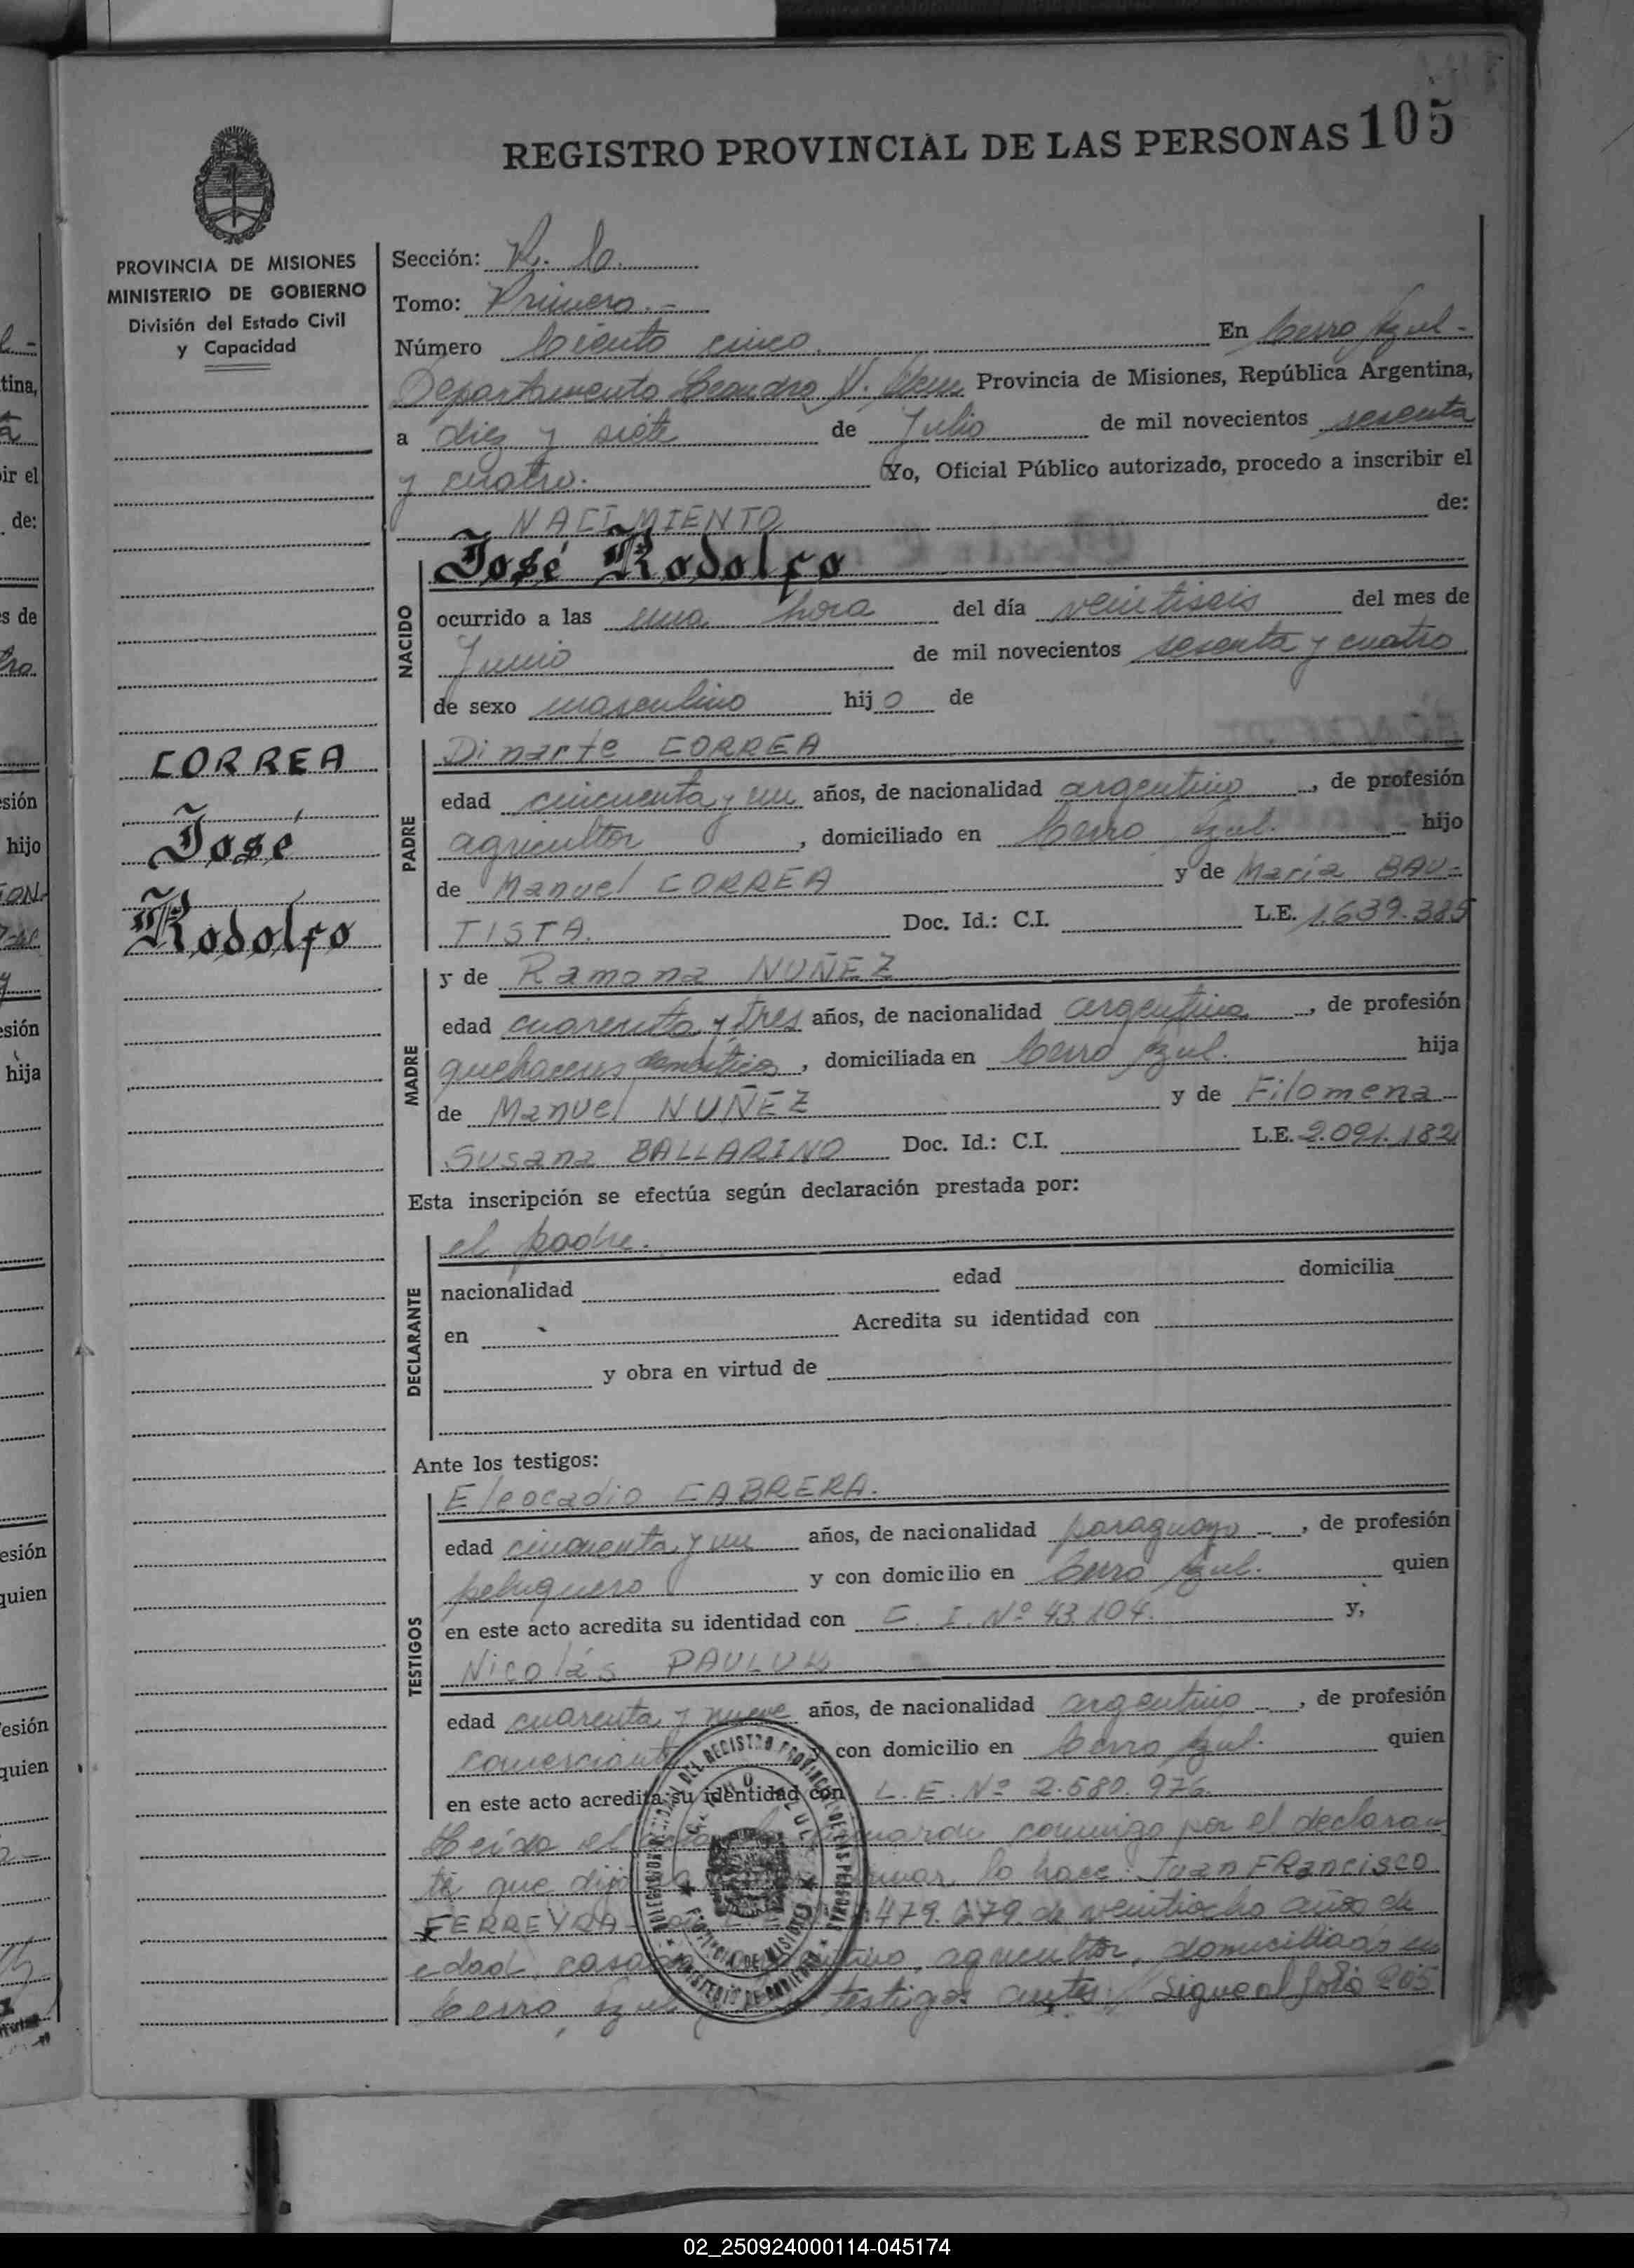 REGISTRO PROVINCIAL DE LAS PERSONAS 105
PROVINCIA DE MISIONES
MINISTERIO DE GOBIERNO
División del Estado Civil
y Capacidad
CORREA
José
Rodolfo
Sección:
Tomo: Primero.-
Número Ciento cinco. En Cerro Azul-
Departamento Leandro N. Alem Provincia de Misiones, República Argentina,
a diez y siete de Julio de mil novecientos sesenta
y cuatro. Yo, Oficial Público autorizado, procedo a inscribir el
NACIMIENTO de:
NACIDO
José Rodolfo
ocurrido a las una hora del día veintiseis del mes de
Junio de mil novecientos sesenta y cuatro
de sexo masculino hijo de
PADRE
Dinarte CORREA
edad cincuenta y un años, de nacionalidad argentino, de profesión
agricultor, domiciliado en Cerro Azul. hijo
de Manuel CORREA y de María BAU-
TISTA. Doc. Id.: C.I. L.E. 1.639.385
MADRE
y de Ramona NUÑEZ
edad cuarenta y tres años, de nacionalidad argentina, de profesión
quehaceres domésticos, domiciliada en Cerro Azul. hija
de Manuel NUÑEZ y de Filomena
Susana BALLARINO Doc. Id.: C.I. L.E. 2.091.182
Esta inscripción se efectúa según declaración prestada por:
DECLARANTE
el padre.
nacionalidad edad domicilia
en Acredita su identidad con
y obra en virtud de
Ante los testigos:
TESTIGOS
Eleocadio CABRERA.
edad cincuenta y un años, de nacionalidad paraguayo, de profesión
peluquero y con domicilio en Cerro Azul. quien
en este acto acredita su identidad con C. I. Nº 43.104. y,
Nicolás PAULUK
edad cuarenta y nueve años, de nacionalidad argentino, de profesión
comerciante y con domicilio en Cerro Azul. quien
en este acto acredita su identidad con L.E. Nº 2.580.976
Leída el conmigo por el declaran
te que dijo lo hace: Juan FRancisco
FERREYRA 479.279. de veintiocho años de
edad, casado, agricultor, domiciliado en
Cerro Azul testigos antes/ Sigue al folio 205
02_250924000114-045174